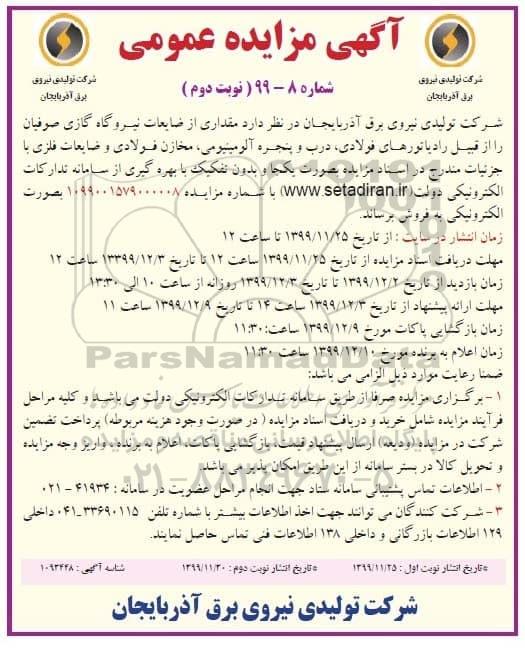 آگهی مزایده عمومی
شماره ۸ – ۹۹ ( نوبت دوم )
شرکت تولیدی نیروی
برق آذربایجان
شرکت تولیدی نیروی
برق آذربایجان
شرکت تولیدی نیروی برق آذربایجان در نظر دارد مقداری از ضایعات نیروگاه گازی صوفیان
را از قبیل رادیاتورهای فولادی، درب و پنجره آلومینیومی، مخازن فولادی و ضایعات فلزی با
جزئیات مندرج در اسناد مزایده بصورت یکجا و بدون تفکیک با بهره گیری از سامانه تدارکات
الکترونیکی دولت(www.setadiran.ir) با شماره مزایده ۱۰۹۹۰۰۱۵۷۹۰۰۰۰۰۸ بصورت
الکترونیکی به فروش برساند.
زمان انتشار در سایت : از تاریخ ۱۳۹۹/۱۱/۲۵ تا ساعت ۱۲
مهلت دریافت اسناد مزایده از تاریخ ۱۳۹۹/۱۱/۲۵ ساعت ۱۲ تا تاریخ ۱۳۳۹۹/۱۲/۳ ساعت ۱۲
زمان بازدید از تاریخ ۱۳۹۹/۱۲/۲ تا تاریخ ۱۳۹۹/۱۲/۳ روزانه از ساعت ۱۰ الی ۱۳:۳۰
مهلت ارائه پیشنهاد از تاریخ ۱۳۹۹/۱۲/۳ ساعت ۱۴ تا تاریخ ۱۳۹۹/۱۲/۹ ساعت ۱۱
زمان بازگشایی پاکات مورخ ۱۳۹۹/۱۲/۹ ساعت:۱۱:۳۰
زمان اعلام به برنده مورخ ۱۳۹۹/۱۲/۱۰ ساعت ۱۱:۳۰
ضمنا رعایت موارد ذیل الزامی می باشد:
۱ - برگزاری مزایده صرفا از طریق سامانه تدارکات الکترونیکی دولت می باشد و کلیه مراحل
فرآیند مزایده شامل خرید و دریافت اسناد مزایده ( در صورت وجود هزینه مربوطه) پرداخت تضمین
شرکت در مزایده (ودیعه) ارسال پیشنهاد قیمت، بازگشایی پاکات، اعلام به برنده، واریز وجه مزایده
و تحویل کالا در بستر سامانه از این طریق امکان پذیر می باشد.
۲ - اطلاعات تماس پشتیبانی سامانه ستاد جهت انجام مراحل عضویت در سامانه : ۴۱۹۳۴ - ۰۲۱
۳ - شرکت کنندگان می توانند جهت اخذ اطلاعات بیشتر با شماره تلفن ۳۳۶۹۰۱۱۵-۰۴۱ داخلی
۱۲۹ اطلاعات بازرگانی و داخلی ۱۳۸ اطلاعات فنی تماس حاصل نمایند.
*تاریخ انتشار نوبت اول : ۱۳۹۹/۱۱/۲۵ *تاریخ انتشار نوبت دوم : ۱۳۹۹/۱۱/۳۰ شناسه آگهی : ۱۰۹۳۴۴۸
شرکت تولیدی نیروی برق آذربایجان
ParsNamadData
۰۲۱-۸۸۳۴۹۶۷۰-۵